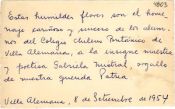 4803
Estas humildes flores son el home-
naje cariñoso y sincero de los alum-
nos del Colegio Chileno Británico de
Villa Alemana, a la insigne maestra
y poetisa Gabriela Mistral, orgullo
de nuestra querida Patria
Villa Alemana, 8 de Setiembre de 1954